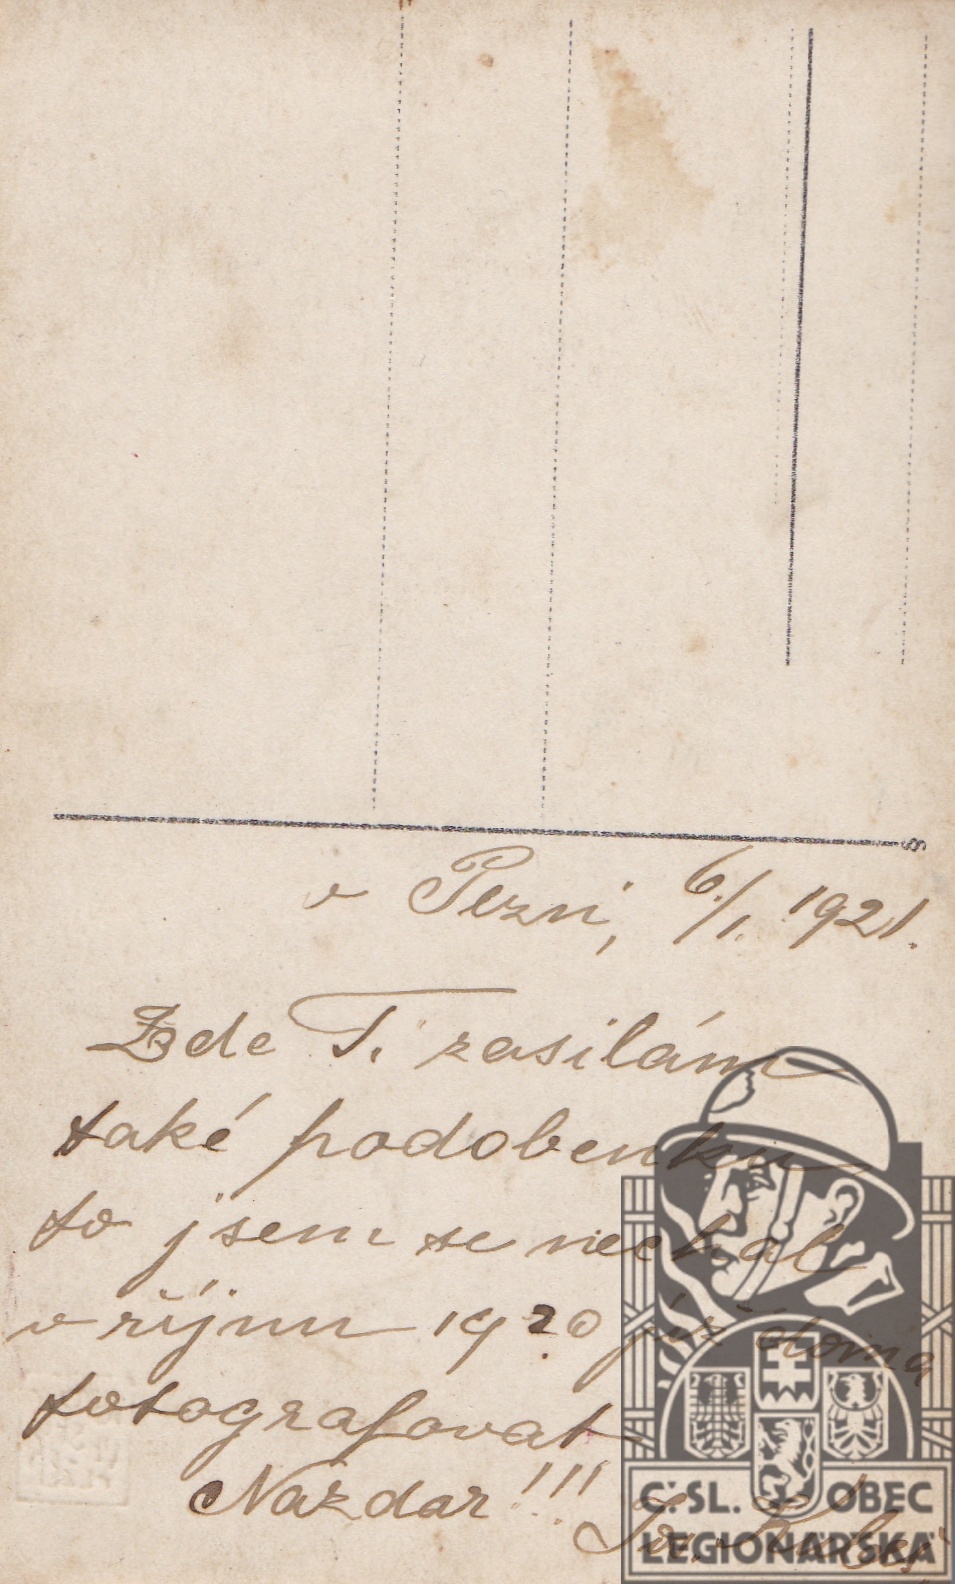 v Plzni, 6./1. 1921.
Zde T. zasilám
také podobenku
to jsem se nechal
v říjnu 1920 již doma
fotografovat
Nazdar!!!
Č.SL. OBEC
LEGIONÁŘSKÁ